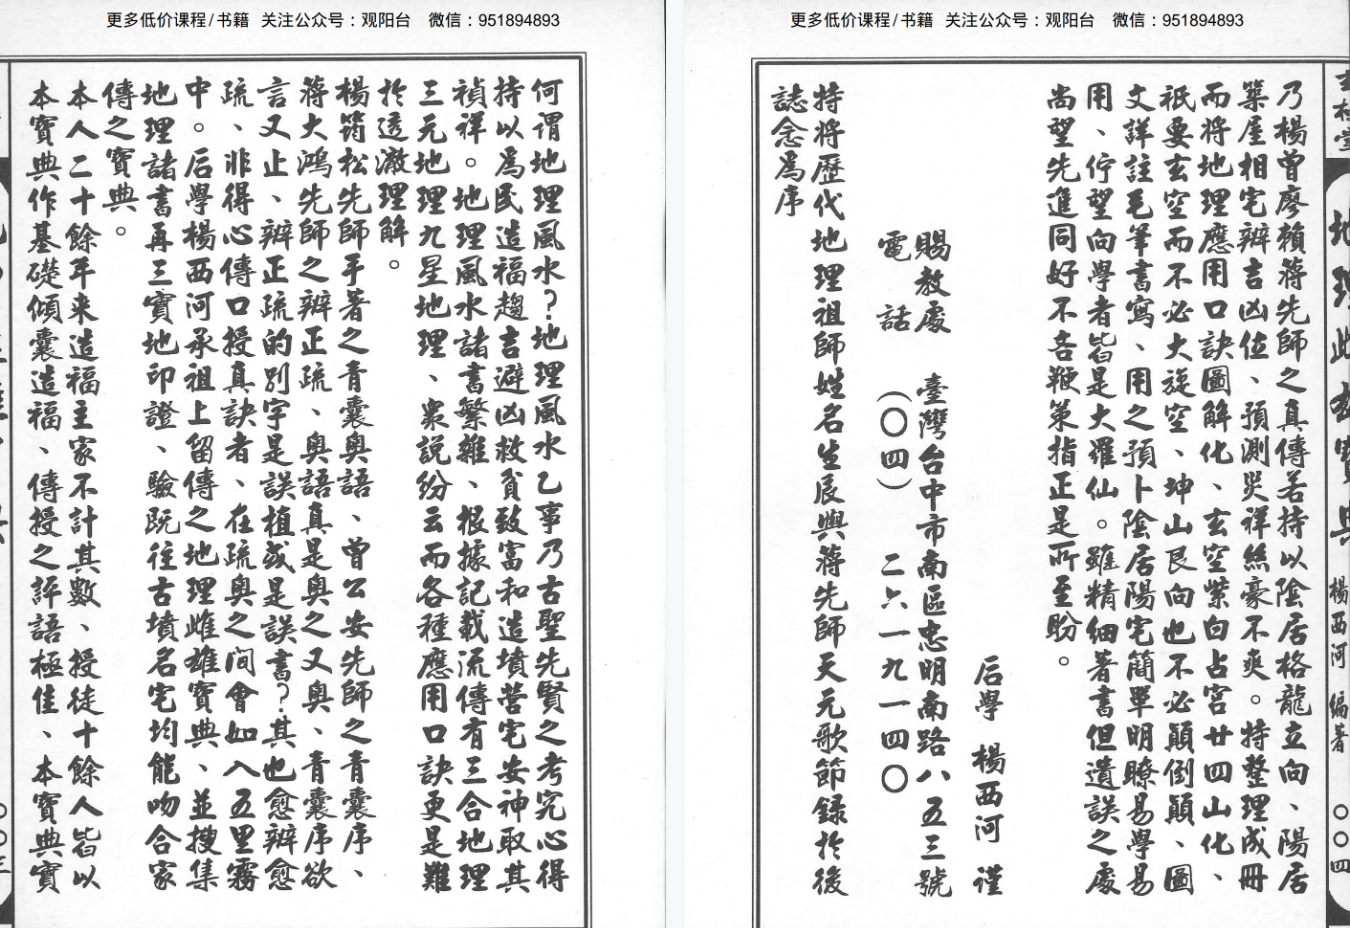 更多低价课程/书籍 关注公众号：观阳台 微信：951894893
何谓地理風水？地理風水乙事乃古聖先賢之考究心得
持以為民造福趨吉避凶救貧致富和造墳營宅安神取其
禎祥。地理風水諸書繁雜、根據記載流傳有三合地理
三元地理九星地理、衆說紛云而各種應用口訣更是難
於透澈理解。
楊筠松先師手著之青囊奧語、曾公安先師之青囊序、
蔣大鴻先師之辨正疏、奧語真是奧之又奧、青囊序欲
言又止、辨正疏的別字是誤植或是誤書？其也愈辨愈
疏、非得心傳口授真訣者、在疏奧之間會如入五里霧
中。后學楊西河承祖上留傳之地理雌雄寶典、並搜集
地理諸書再三實地印證、驗既往古墳名宅均能吻合家
傳之寶典。
本人二十餘年来造福主家不計其數、授徒十餘人皆以
本寶典作基礎傾囊造福、傳授之評語極佳、本寶典實
更多低价课程/书籍 关注公众号：观阳台 微信：951894893
地理 雄寶典 楊西河 編著 〇〇四
乃楊曾廖賴蔣先師之真傳若持以陰居格龍立向、陽居
築屋相宅辨吉凶位、預測災祥絲豪不爽。特整理成冊
而將地理應用口訣圖解化、玄空紫白占宮廿四山化、
祇要玄空而不必大旋空、坤山艮向也不必顛倒顛、圖
文詳註毛筆書寫、用之預卜陰居陽宅簡單明瞭易學易
用、佇望向學者皆是大羅仙。雖精細著書但遺誤之處
尚望先進同好不吝鞭策指正是所至盼。
后學 楊西河 謹
賜教處 臺灣台中市南區忠明南路八五三號
電話 （〇四）二六一九一四〇
特將歷代地理祖師姓名生辰與蔣先師天元歌節録於後
誌念為序